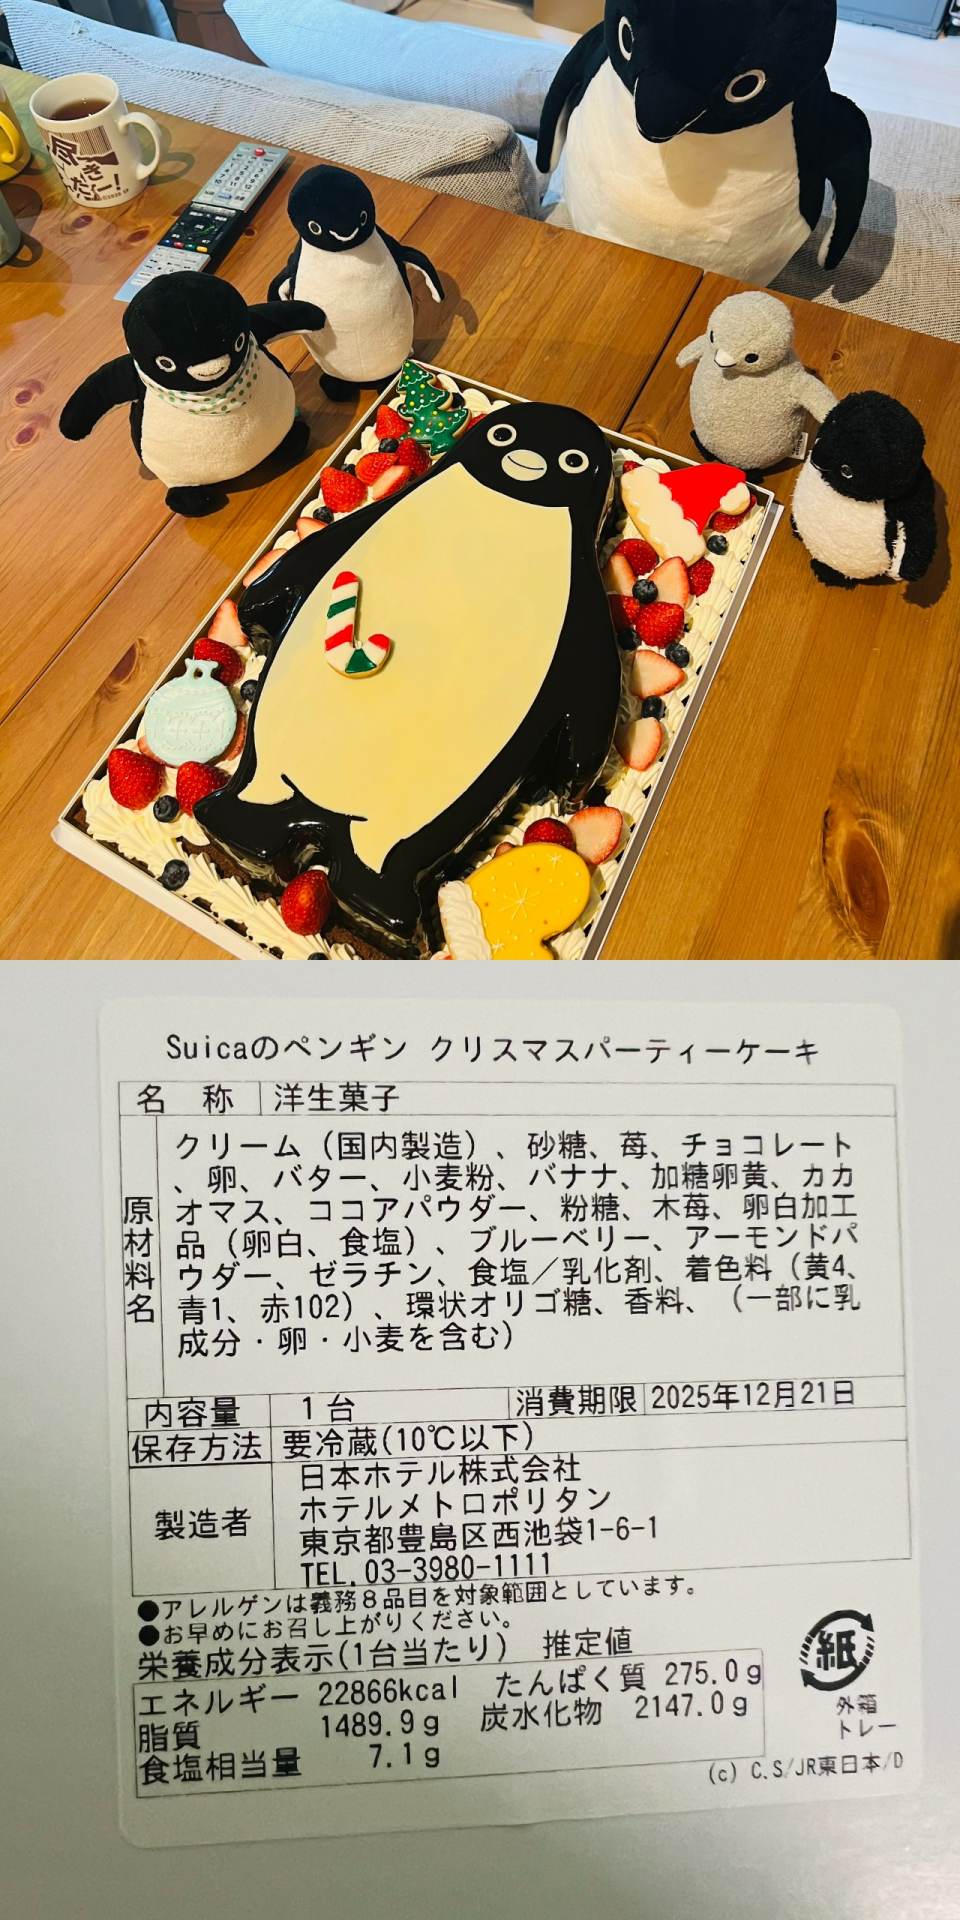 き
だー!
Suicaのペンギン クリスマスパーティーケーキ
名 称 洋生菓子
原材料名
クリーム（国内製造）、砂糖、苺、チョコレート
、卵、バター、小麦粉、バナナ、加糖卵黄、カカ
オマス、ココアパウダー、粉糖、木苺、卵白加工
品（卵白、食塩）、ブルーベリー、アーモンドパ
ウダー、ゼラチン、食塩／乳化剤、着色料（黄4、
青1、赤102）、環状オリゴ糖、香料、（一部に乳
成分・卵・小麦を含む）
内容量 1台 消費期限 2025年12月21日
保存方法 要冷蔵(10℃以下)
製造者
日本ホテル株式会社
ホテルメトロポリタン
東京都豊島区西池袋1-6-1
TEL.03-3980-1111
●アレルゲンは義務８品目を対象範囲としています。
●お早めにお召し上がりください。
栄養成分表示(1台当たり) 推定値
エネルギー 22866kcal たんぱく質 275.0g
脂質 1489.9g 炭水化物 2147.0g
食塩相当量 7.1g
紙
外箱
トレー
(c) C.S/JR東日本/D